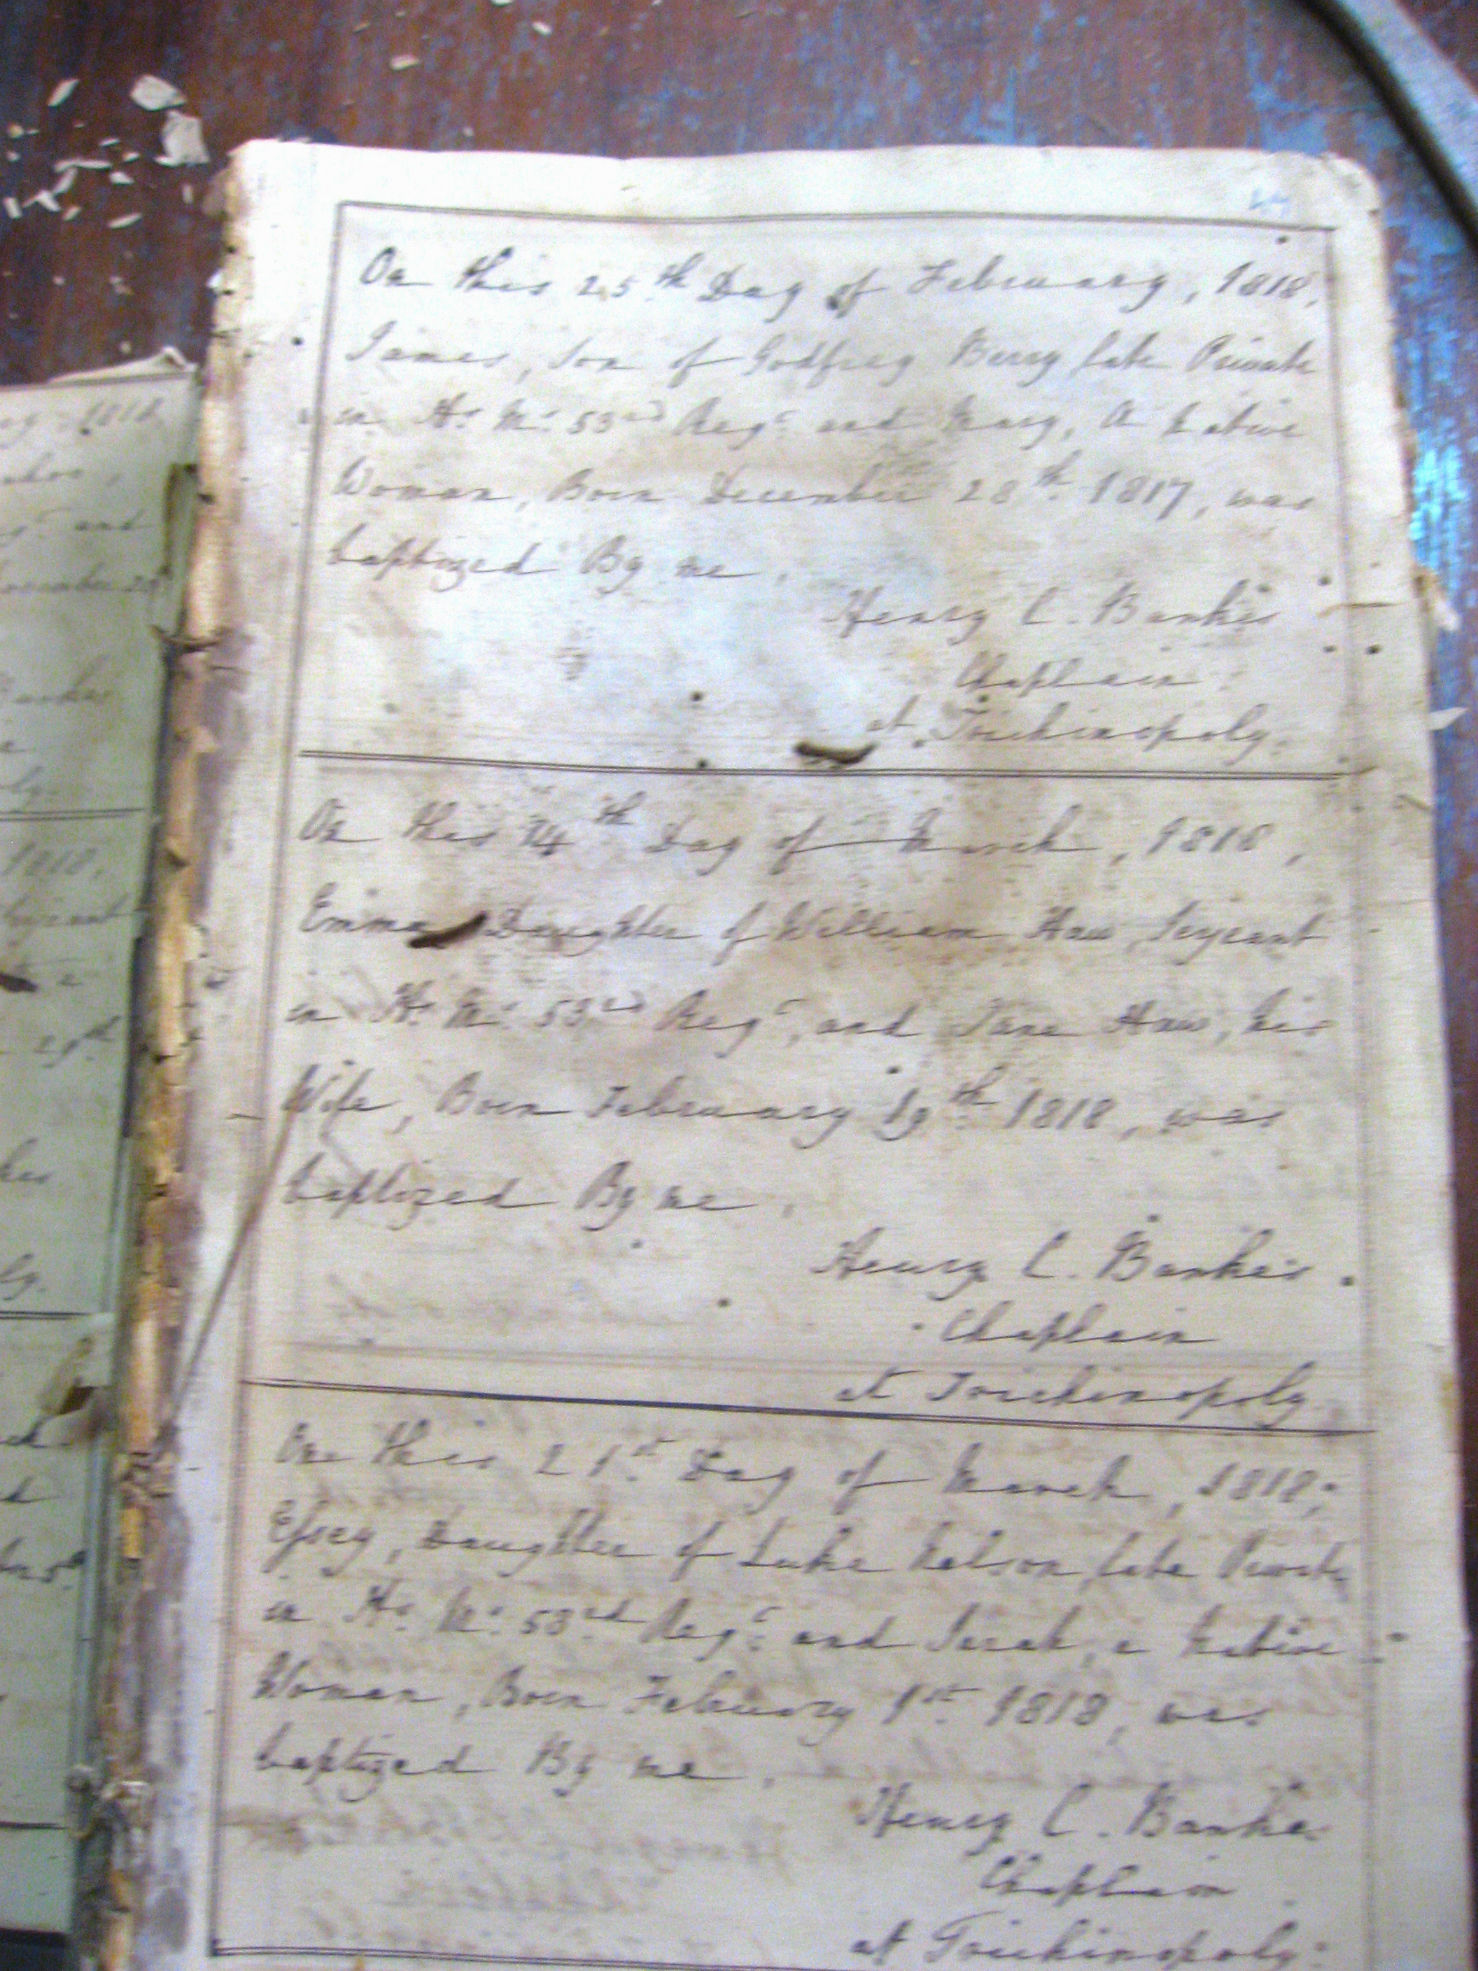 On this 25th Day of February, 1818,
James, Son of Godfrey Berry late Private
in Hs Ms 53rd Regt and Mary, A Native
Woman, Born December 28th 1817, was
baptized By me.
Henry C. Bankes
Chaplain
at Trichinopoly.
On this 14th Day of March, 1818,
Emma Daughter of William Haw Serjeant
in Hs Ms 53rd Regt, and Jane Haw, his
Wife, Born February 19th 1818, was
baptized By me.
Henry C. Bankes.
Chaplain
at Trichinopoly
On this 21st Day of March, 1818,
Essey, Daughter of Luke Nelson late Private
in Hs Ms 53rd Regt and Sarah, a Native
Woman, Born February 1st 1818, was
baptized By me.
Henry C. Bankes
Chaplain
at Trichinopoly.
1818.
and
1818.
29th